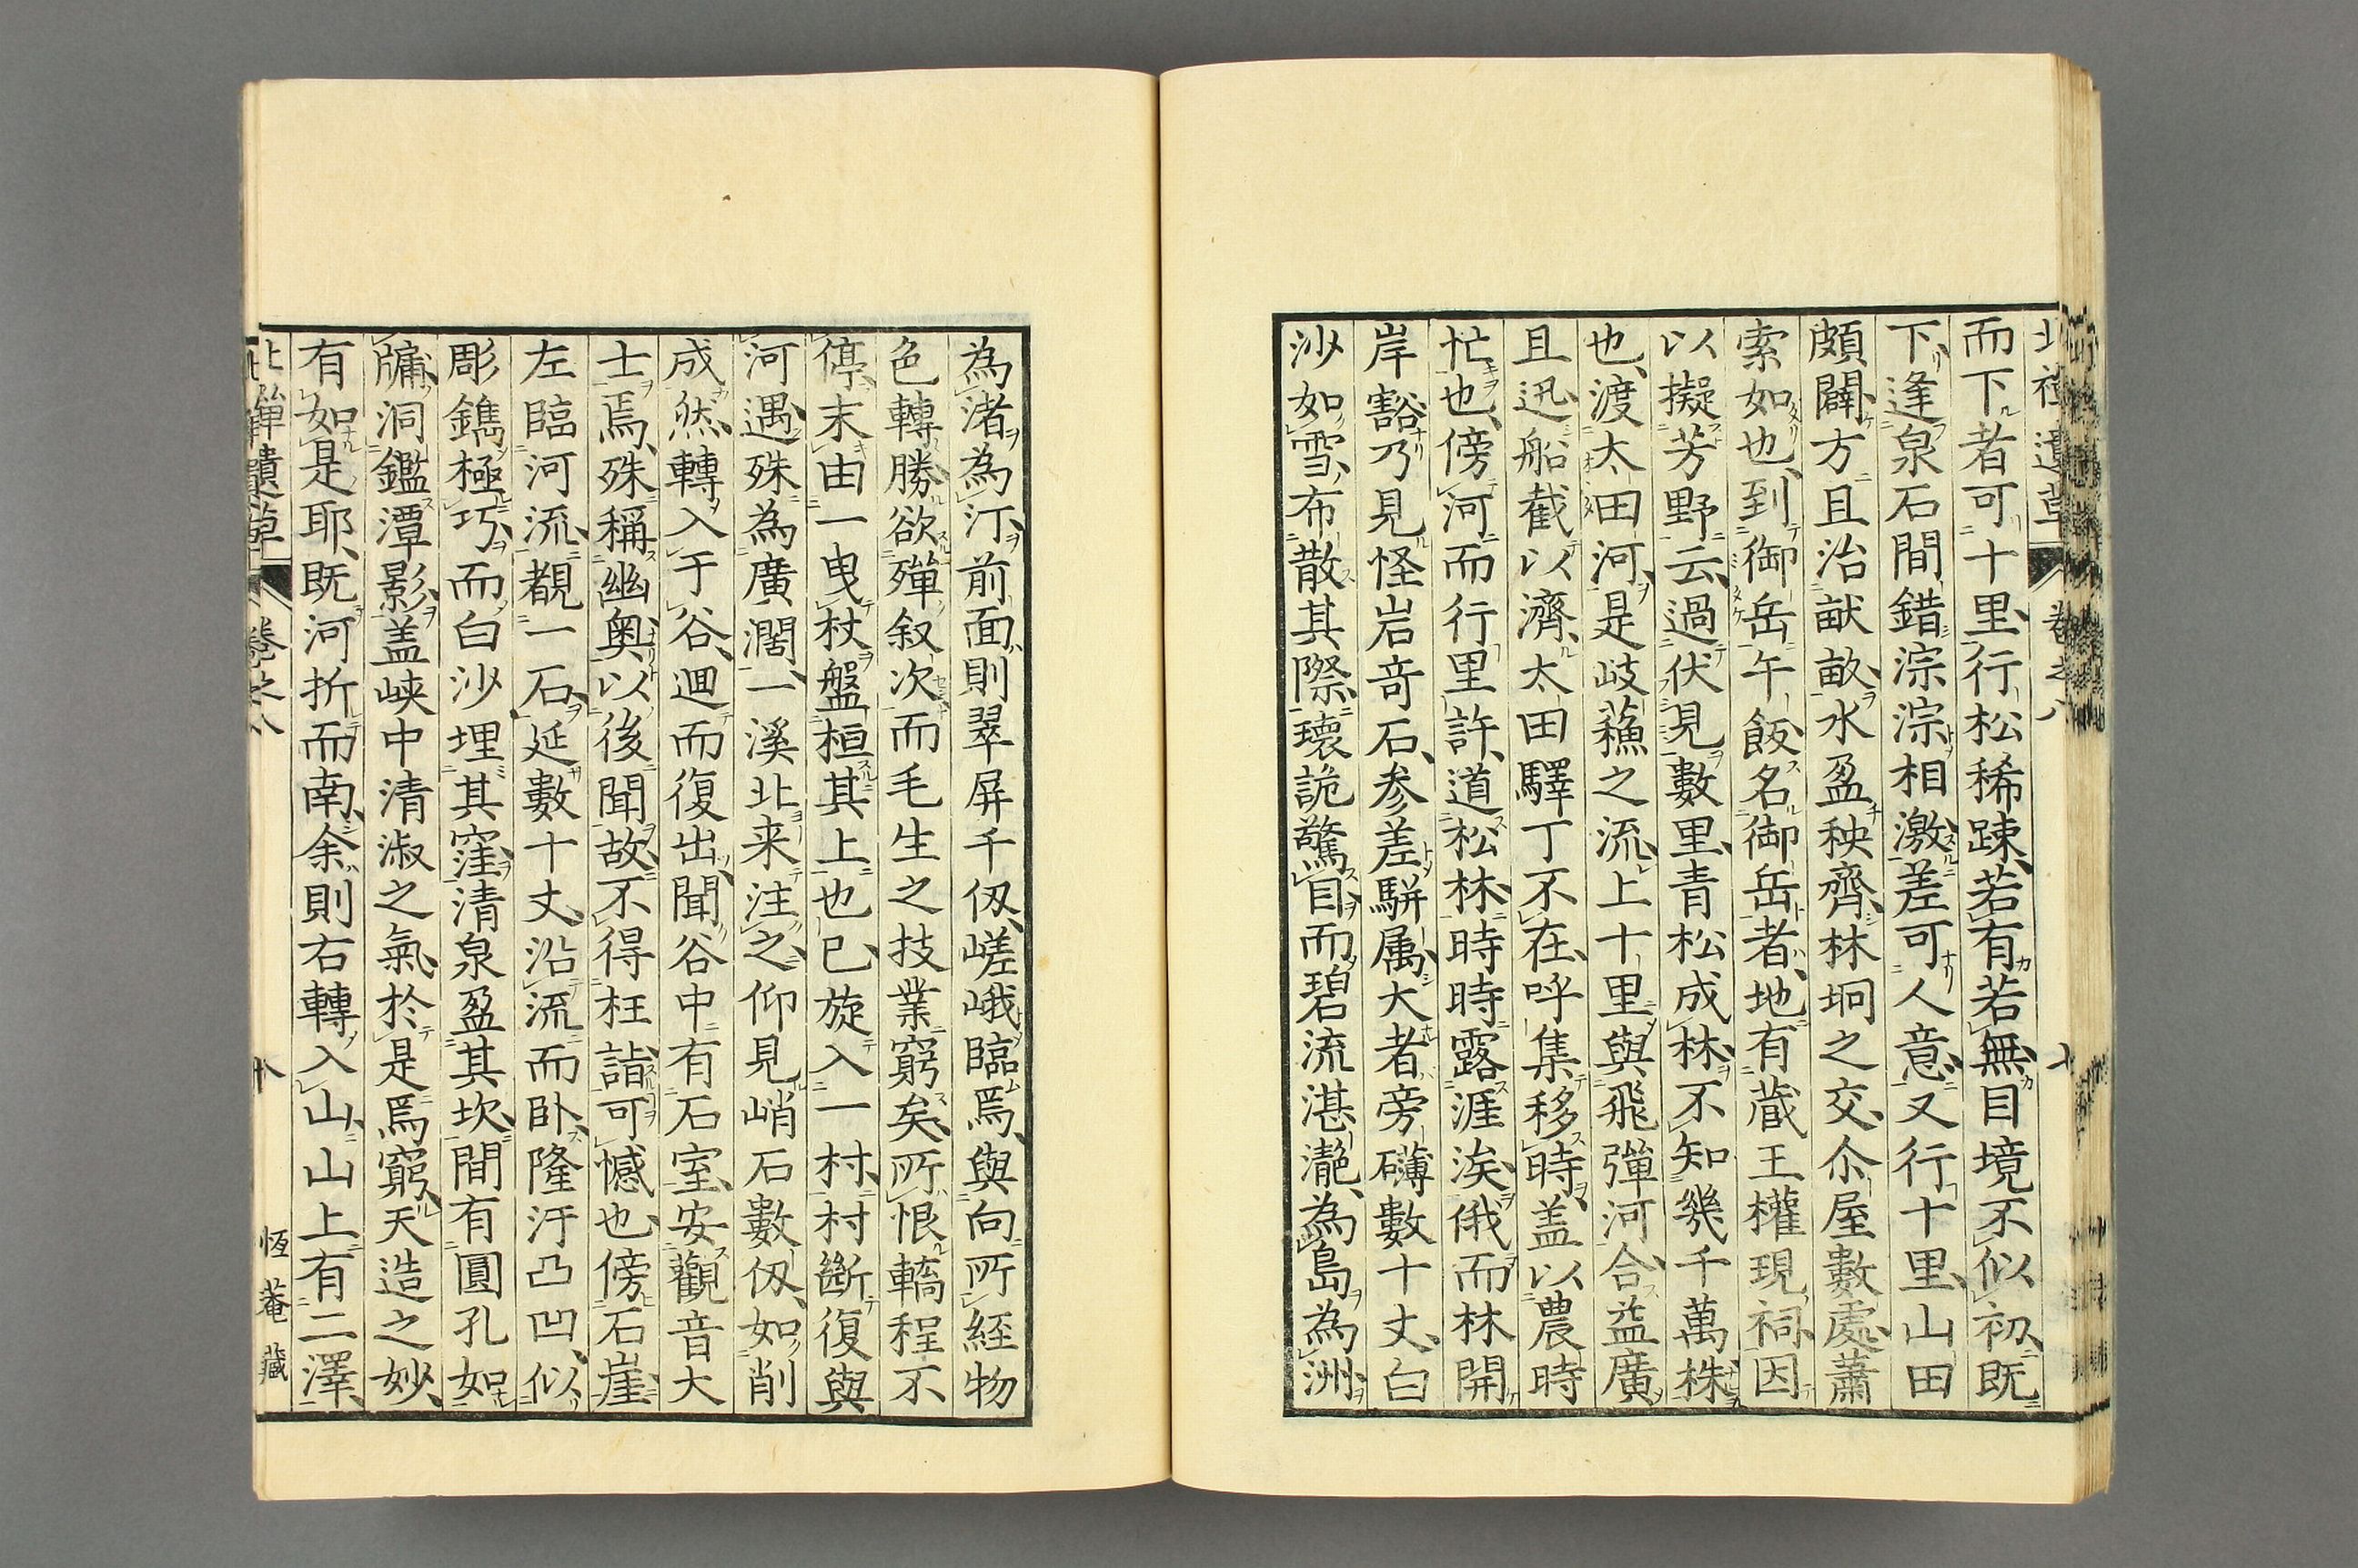 而下者可十里行松稀踈若有若無目境不似初既
下逢泉石間錯淙淙相激差可人意又行十里山田
頗闢方且治畎畝水盈秧齊林坰之交尒屋數處蕭
索如也到御岳午飯名御岳者地有蔵王權現祠因
以擬芳野云過伏見數里青松成林不知幾千萬株
也渡太田河是岐蘓之流上十里與飛彈河合益廣
且迅船截以濟太田驛丁不在呼集移時盖以農時
忙也傍河而行里許道松林時時露涯涘俄而林開
岸豁乃見怪岩竒石参差駢属大者旁礴數十丈白
沙如雪布散其際瓌詭驚目而碧流湛灔為島為洲
為渚為汀前面則翠屏千仭嵯峨臨焉與向所經物
色轉勝欲殫叙次而毛生之技業窮矣所恨轎程不
停末由一曳杖盤桓其上也已旋入一村村斷復與
河遇殊為廣濶一溪北来注之仰見峭石數仭如削
成然轉入于谷迴而復出聞谷中有石室安觀音大
士焉殊稱幽奥以後聞故不得枉詣可憾也傍石崖
左臨河流覩一石延數十丈沿流而卧隆汙凸凹似
彫鐫極巧而白沙埋其窪清泉盈其坎間有圓孔如
牖洞鑑潭影盖峡中清淑之氣於是焉窮天造之妙
有如是耶既河折而南余則右轉入山山上有二澤
北禪遺草 卷之八 十 恆菴藏